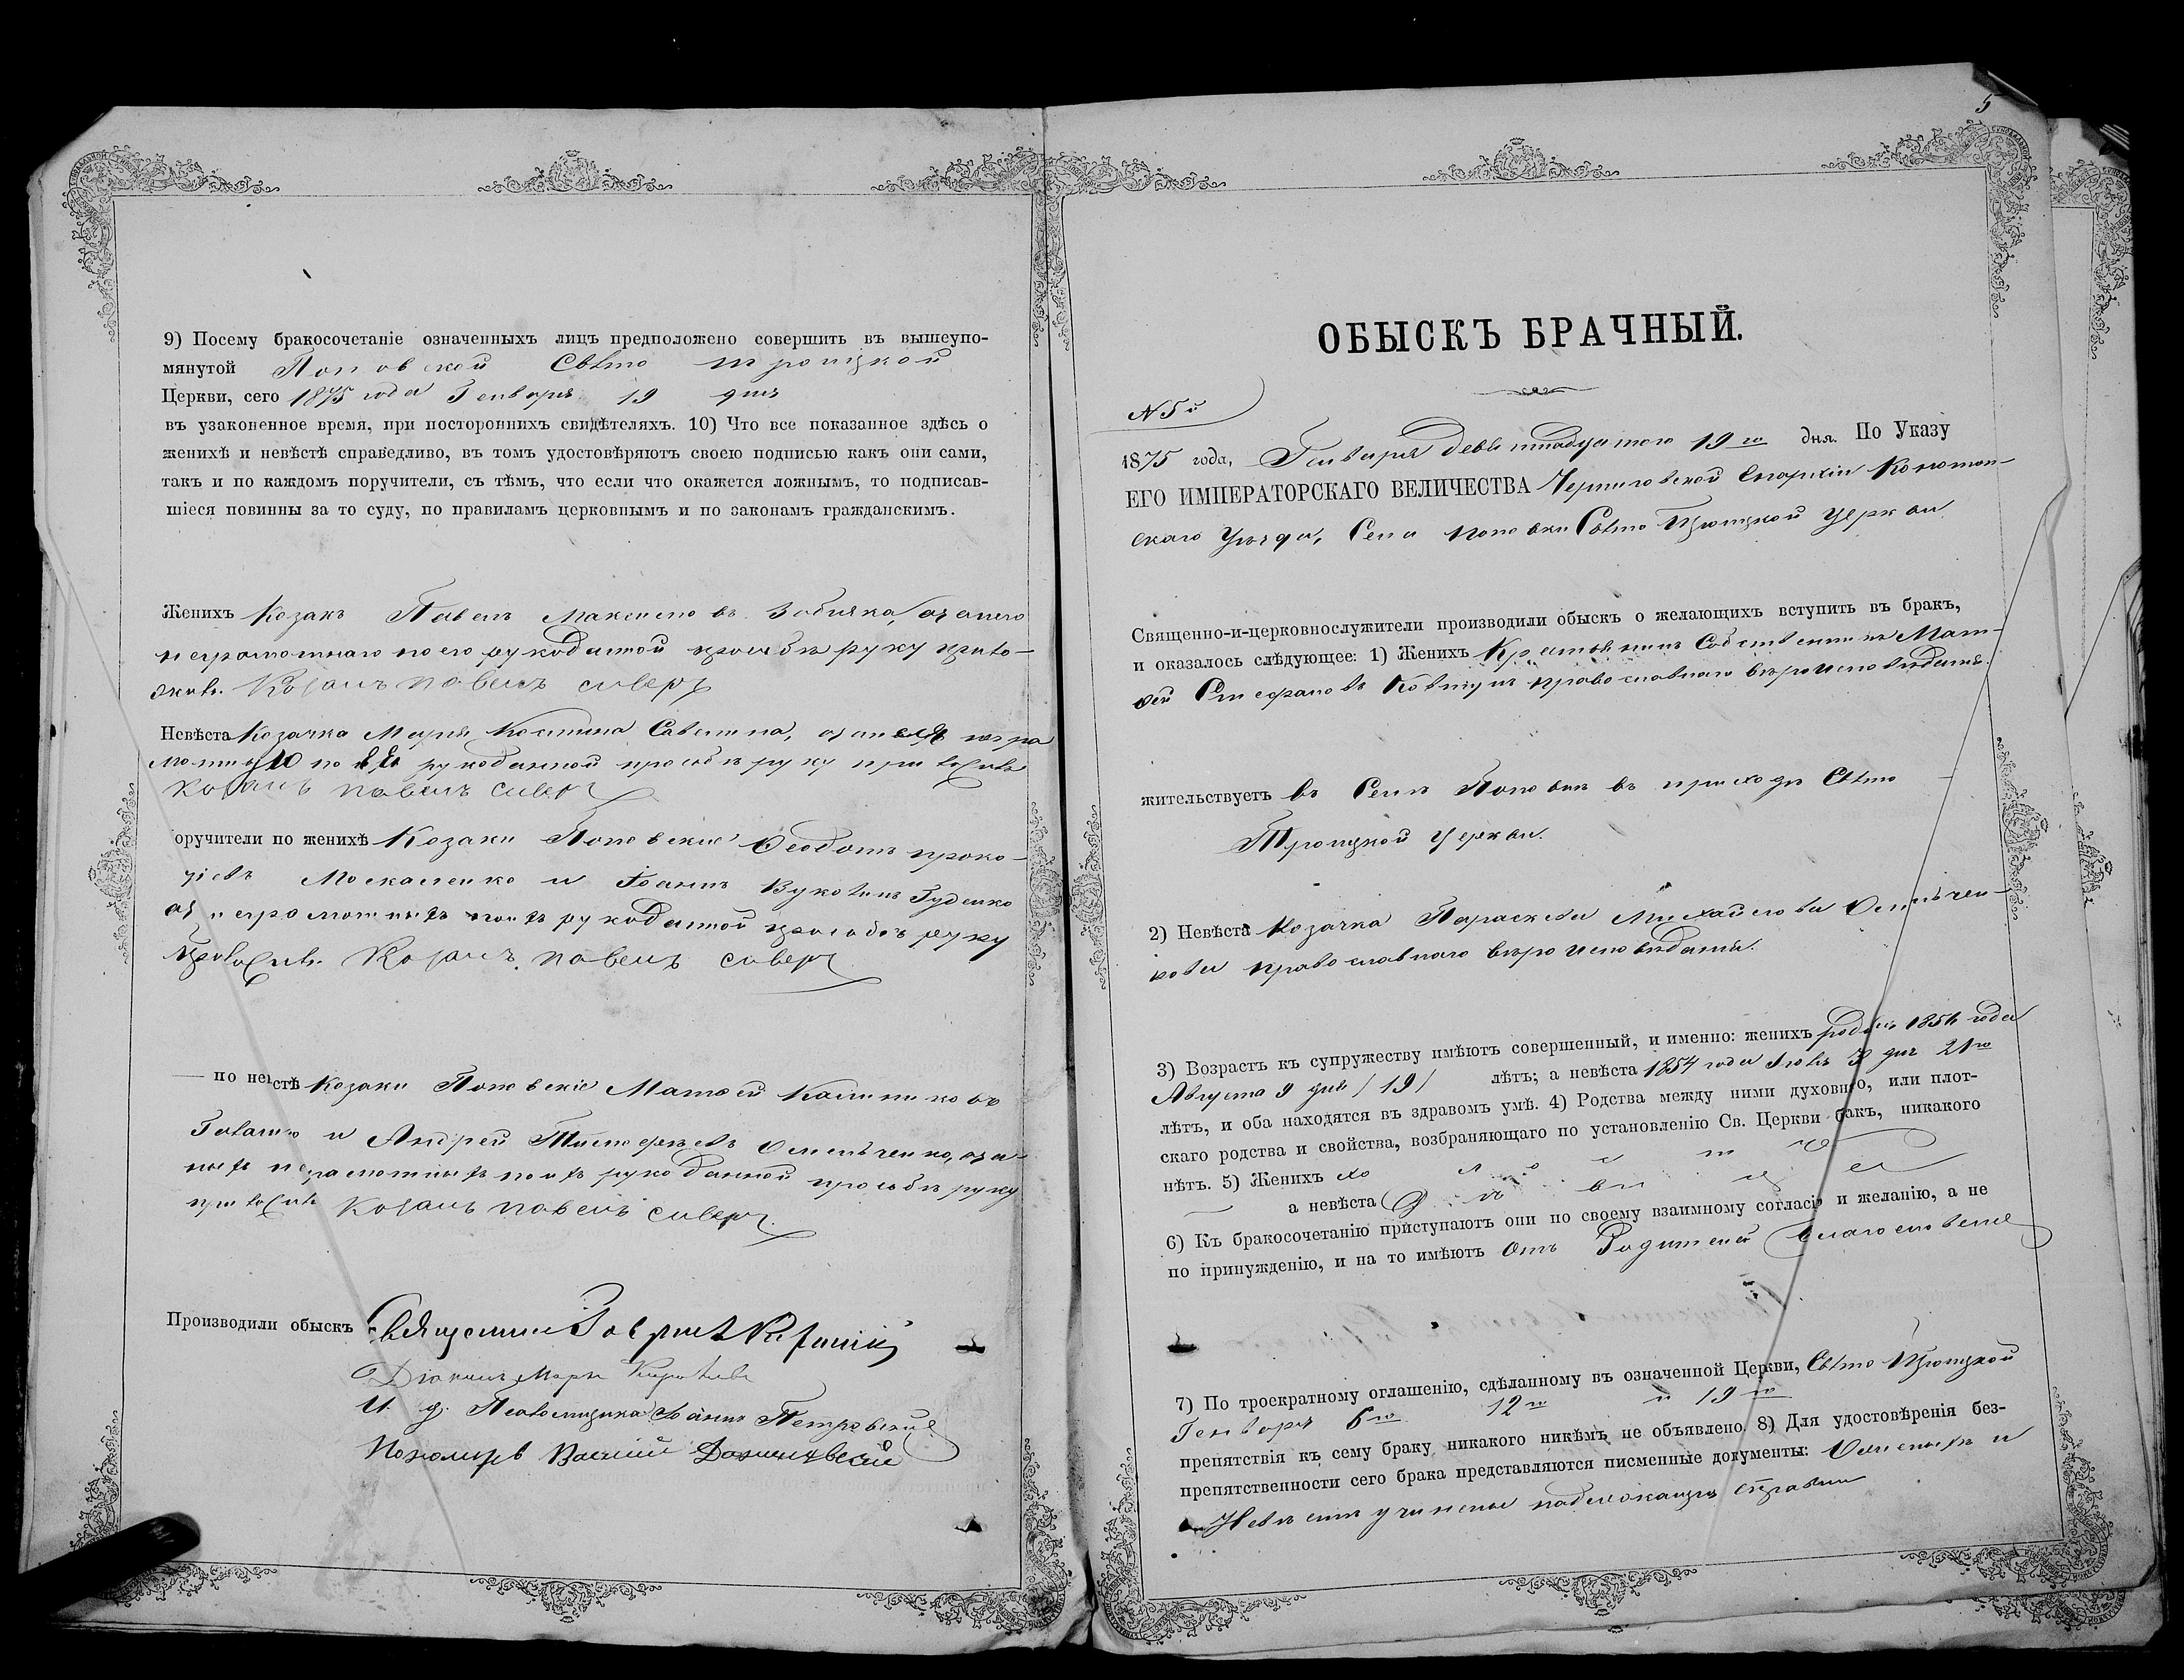 9) Посему бракосочетаніе означенныхъ лицъ предположено совершить въ вышеупо-
мянутой Поповской Свято Троицкой
Церкви, сего 1875 года Генваря 19 дня
въ узаконенное время, при постороннихъ свидѣтеляхъ. 10) Что все показанное здѣсь о
женихѣ и невѣстѣ справедливо, въ томъ удостовѣряютъ своею подписью какъ они сами,
такъ и по каждомъ поручители, съ тѣмъ, что если что окажется ложнымъ, то подписав-
шіеся повинны за то суду, по правиламъ церковнымъ и по законамъ гражданскимъ.
Женихъ Козакъ Павелъ Максимовъ, а за него
неграмотнаго по его рукоданной просьбѣ руку прило-
жилъ Козакъ Павелъ Сиверъ
Невѣста Козачка Марія Костина Савѣтина, а за нея негра
мотную по ея рукоданной просьбѣ руку приложилъ
Козакъ Павелъ Сиверъ
оручители по женихѣ Козаки Поповскіе Ѳеодотъ Проко-
піевъ Москаленко и Іоаннъ Гуденко
а за неграмотныхъ по ихъ рукоданной просьбѣ руку
приложилъ Козакъ Павелъ Сиверъ
— по невѣстѣ Козаки Поповскіе Матѳей Калинниковъ
и Андрей Тимоѳѣевъ Омельченко, а за
ныхъ неграмотныхъ по ихъ рукоданной просьбѣ руку
приложилъ Козакъ Павелъ Сиверъ
Производили обыскъ Священникъ
Діаконъ Маркъ
И. д. Псаломщика Іоаннъ Петровскій
Пономарь Василій
5
ОБЫСКЪ БРАЧНЫЙ.
№ 5й
1875 года, Генваря девятнадцатого 19го дня. По Указу
ЕГО ИМПЕРАТОРСКАГО ВЕЛИЧЕСТВА Черниговской Епархіи Конотоп-
скаго Уѣзда, Села Поповки Свято Троицкой Церкви
Священно-и-церковнослужители производили обыскъ о желающихъ вступить въ бракъ,
и оказалось слѣдующее: 1) Женихъ Крестьянинъ Собственникъ Мат-
ѳей Стефановъ Ковтунъ православнаго вѣроисповѣданія.
жительствуетъ въ Селѣ Поповкѣ въ приходѣ Свято
Троицкой Церкви.
2) Невѣста Козачка Параскева Михайлова Омельчен-
кова православнаго вѣроисповѣданія.
3) Возрастъ къ супружеству имѣютъ совершенный, и именно: женихъ родил. года
Августа 9 дня /19/ лѣтъ; а невѣста 1854 года дня 21го
лѣтъ, и оба находятся въ здравомъ умѣ. 4) Родства между ними духовнго, или плот-
скаго родства и свойства, возбраняющаго по установленію Св. Церкви бакъ, никакого
нѣтъ. 5) Женихъ холостъ
а невѣста Дѣвица
6) Къ бракосочетанію приступаютъ они по своему взаимному согласію и желанію, а не
по принужденію, и на то имѣютъ Отъ Родителей благословеніе
7) По троекратному оглашенію, сдѣланному въ означенной Церкви, Свято Троицкой
Генваря 6го 12го и 19го
препятствія къ сему браку никакого никѣмъ не объявлено. 8) Для удостовѣренія без-
препятственности сего брака представляются писменные документы: О женихѣ и
Невѣстѣ учинены надлежащія справки